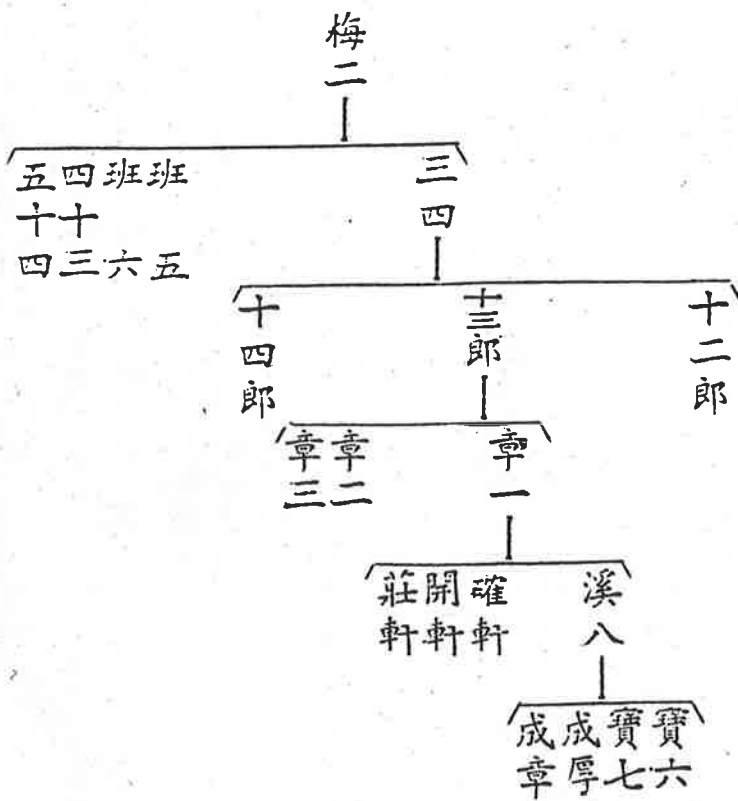 梅二
三四
班五
班六
四十三
五十四
十二郎
十三郎
十四郎
章一
章二
章三
溪八
確軒
開軒
莊軒
寶六
寶七
成厚
成章